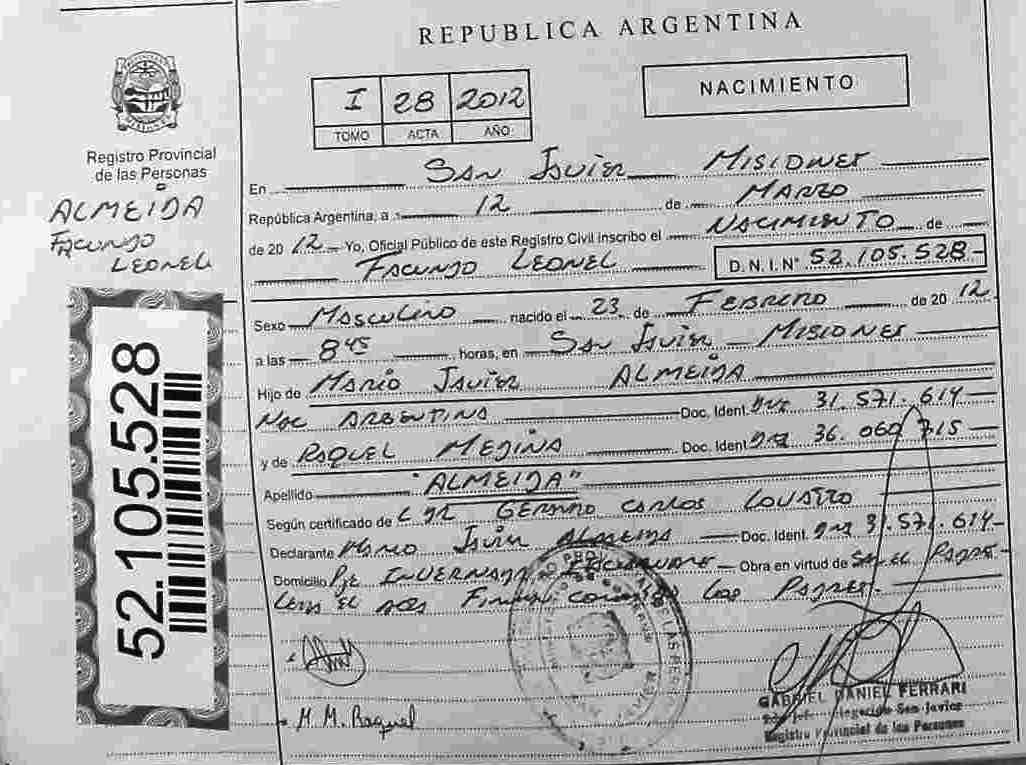 REPUBLICA ARGENTINA
I 28 2012
TOMO ACTA AÑO
NACIMIENTO
Registro Provincial
de las Personas
ALMEIDA
FACUNDO
LEONEL
52.105.528
En San Javier Misiones
República Argentina, a 12 de MARZO
de 2012 Yo, Oficial Público de este Registro Civil inscribo el NACIMIENTO de
FACUNDO LEONEL D.N.I.N° 52.105.528
Sexo Masculino nacido el 23 de FEBRERO de 2012
a las 8 45 horas, en San Javier Misiones
Hijo de MARIO JAVIER ALMEIDA
Nac ARGENTINA Doc. Ident. 31.571.614
y de RAQUEL MEDINA Doc. Ident. 36.060.715
Apellido "ALMEIDA"
Según certificado de CARLOS
Declarante MARIO JAVIER ALMEIDA Doc. Ident. 31.571.614
Domicilio Obra en virtud de PADRE
EL LOS PADRES.
M. M. Raquel
GABRIEL DANIEL FERRARI
San Javier
Registro Provincial de las Personas